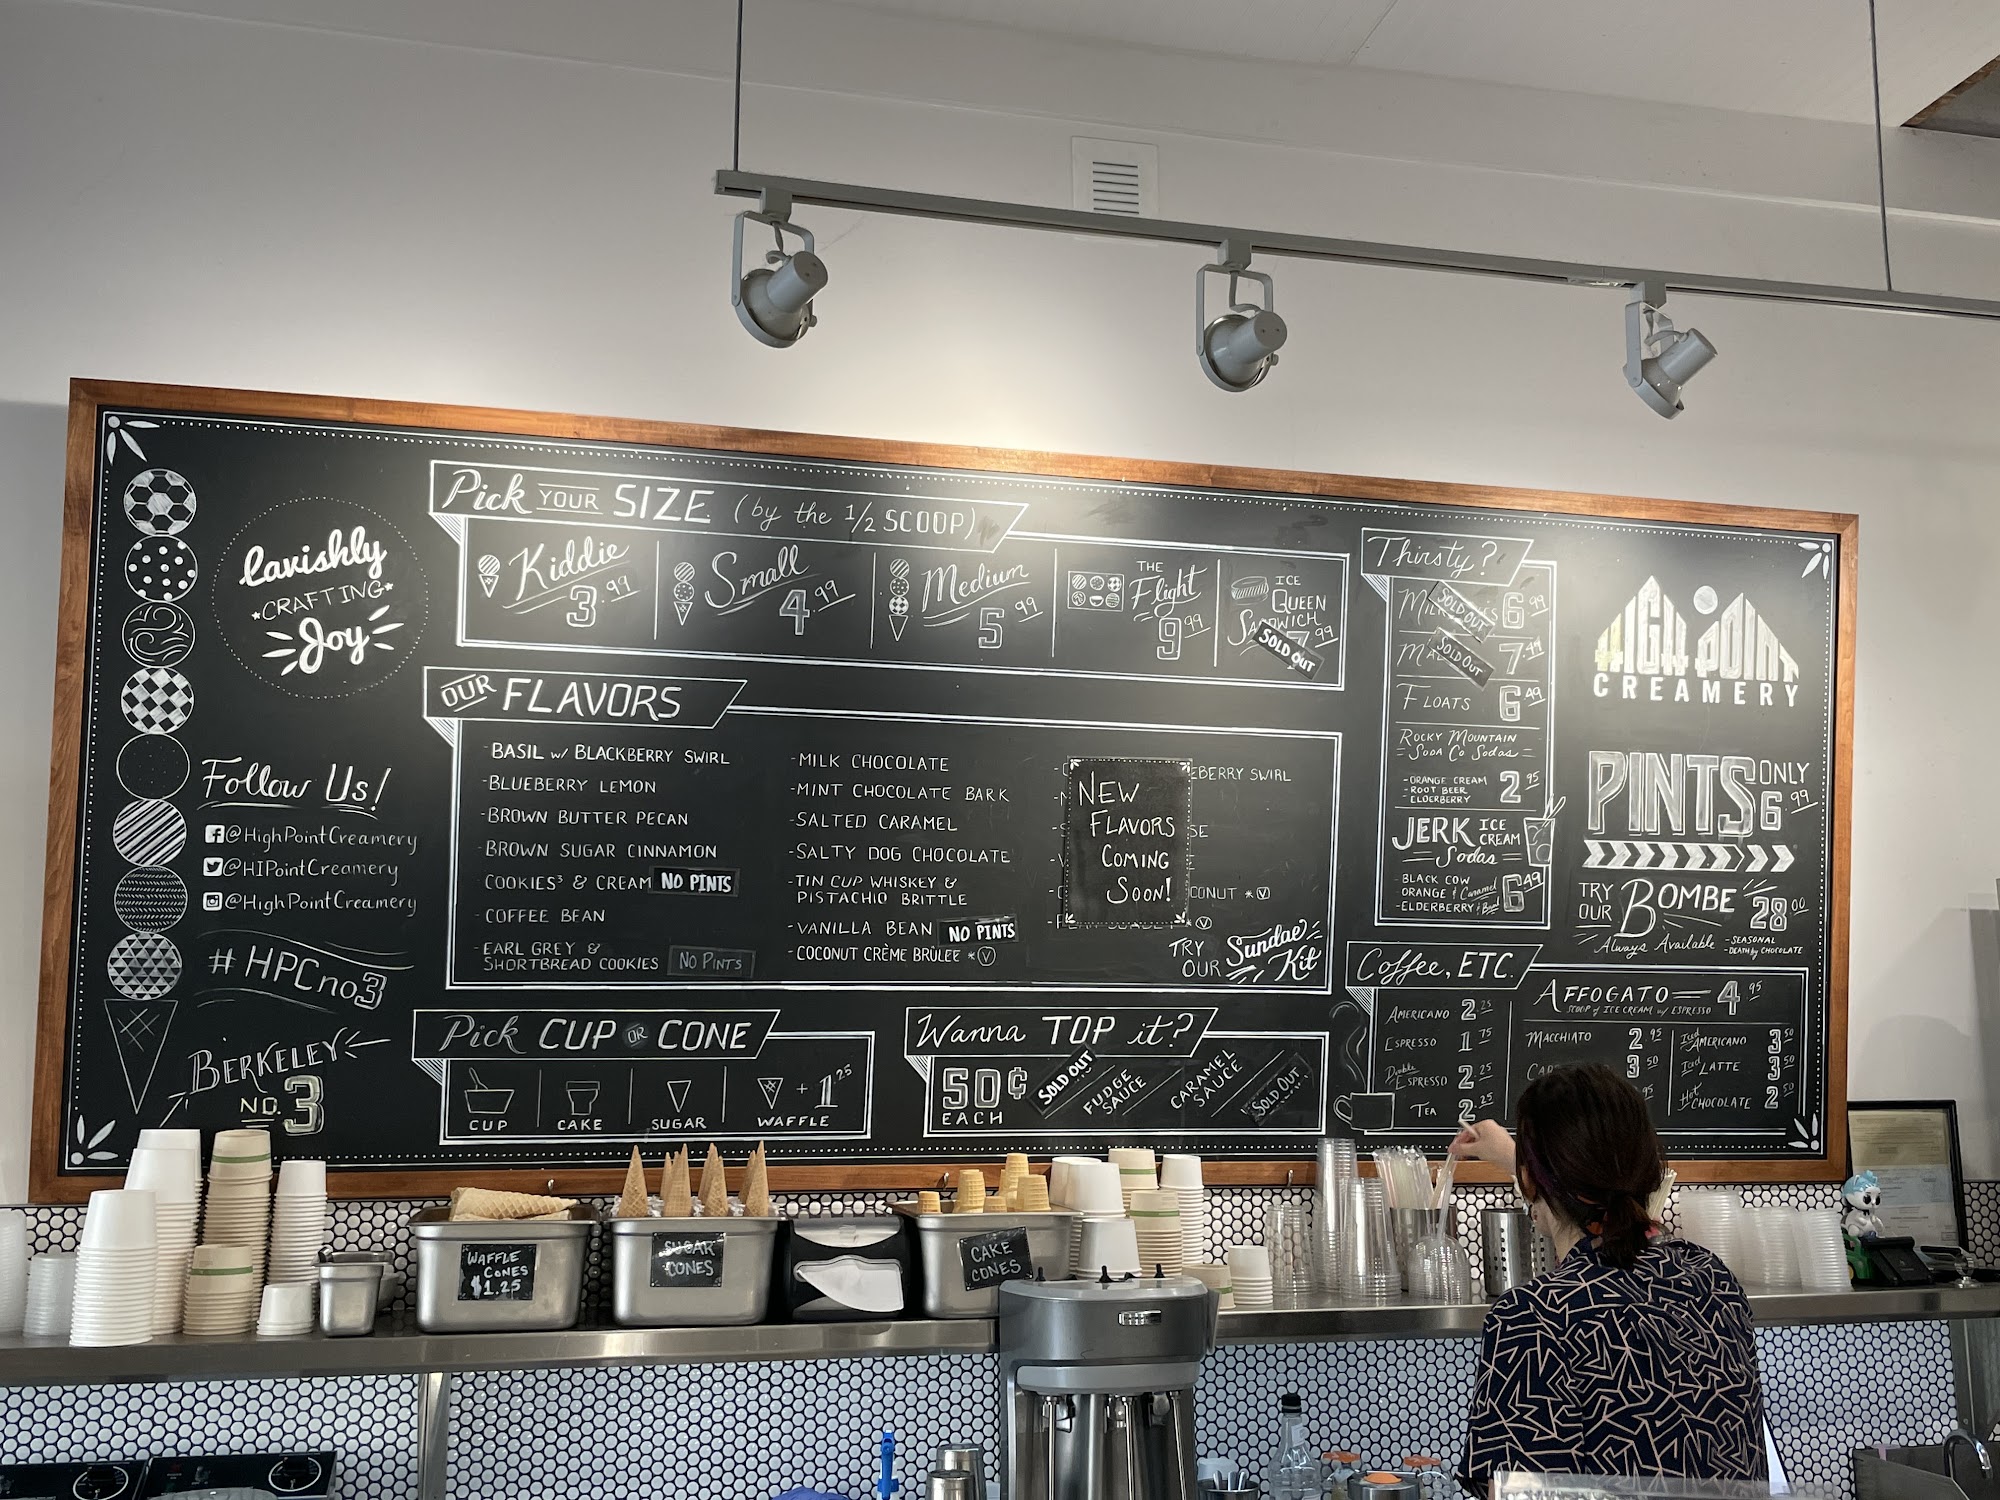 Lavishly
CRAFTING
Joy
Follow Us!
@HighPointCreamery
@HIPointCreamery
@HighPointCreamery
#HPCno3
BERKELEY
NO. 3
Pick YOUR SIZE (by the 1/2 SCOOP)
Kiddie
3.99
Small
4.99
Medium
5.99
THE
Flight
9.99
ICE
QUEEN
SANDWICH
7.99
SOLD OUT
OUR FLAVORS
-BASIL w/ BLACKBERRY SWIRL
-BLUEBERRY LEMON
-BROWN BUTTER PECAN
-BROWN SUGAR CINNAMON
COOKIES³ & CREAM NO PINTS
-COFFEE BEAN
-EARL GREY &
SHORTBREAD COOKIES NO PINTS
-MILK CHOCOLATE
-MINT CHOCOLATE BARK
-SALTED CARAMEL
-SALTY DOG CHOCOLATE
-TIN CUP WHISKEY &
PISTACHIO BRITTLE
-VANILLA BEAN NO PINTS
-COCONUT CRÈME BRÛLÉE *Ⓥ
NEW
FLAVORS
COMING
SOON!
EBERRY SWIRL
SE
CONUT *Ⓥ
TRY
OUR
Sundae
Kit
Pick CUP OR CONE
CUP
CAKE
SUGAR
WAFFLE
+ 1.25
Wanna TOP it?
50¢
EACH
SOLD OUT
FUDGE
SAUCE
CARAMEL
SAUCE
SOLD OUT
Thirsty?
6.99
SOLD OUT
7.49
SOLD OUT
FLOATS 6.49
ROCKY MOUNTAIN
Soda Co Sodas
-ORANGE CREAM
-ROOT BEER
-ELDERBERRY
2.95
JERK ICE
CREAM
Sodas
-BLACK COW
ORANGE & Caramel
-ELDERBERRY &
6.49
HIGH POINT
CREAMERY
PINTS ONLY
6.99
TRY
OUR
BOMBE
28.00
Always Available
-SEASONAL
-DEATH by CHOCOLATE
Coffee, ETC.
AMERICANO 2.25
ESPRESSO 1.75
Double
ESPRESSO 2.25
TEA 2.25
AFFOGATO 4.95
SCOOP of ICE CREAM w/ ESPRESSO
MACCHIATO 2.95
3.50
Iced
AMERICANO 3.50
Iced LATTE 3.50
Hot
CHOCOLATE 2.50
WAFFLE
CONES
$1.25
SUGAR
CONES
CAKE
CONES